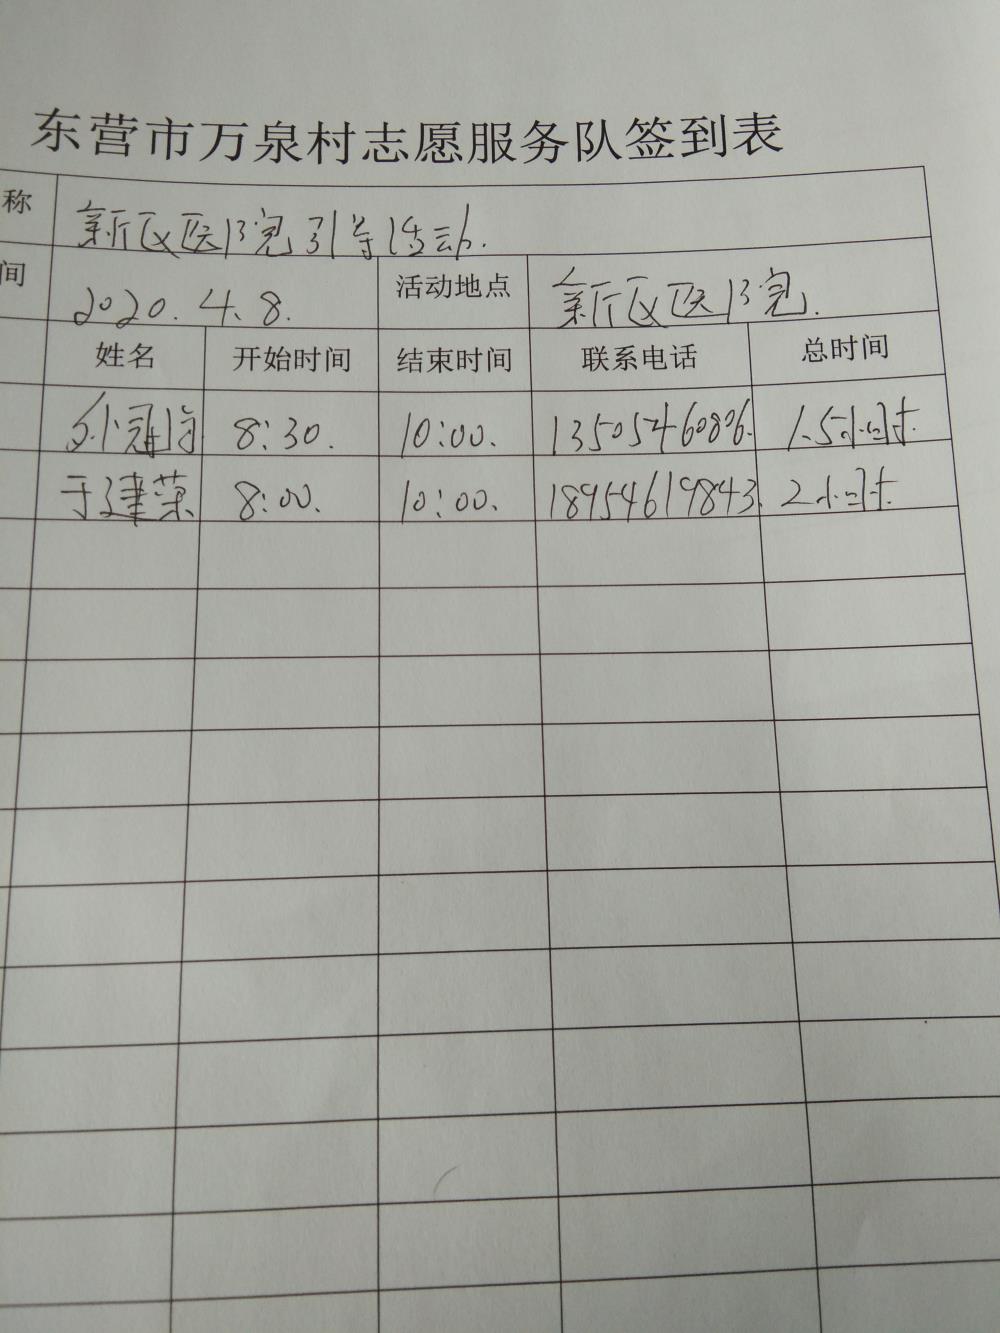 东营市万泉村志愿服务队签到表
称 新区医院引导活动.
间 2020.4.8. 活动地点 新区医院.
姓名 开始时间 结束时间 联系电话 总时间
8:30. 10:00. 13505460806. 1.5小时.
于建荣 8:00. 10:00. 18954619843. 2小时.